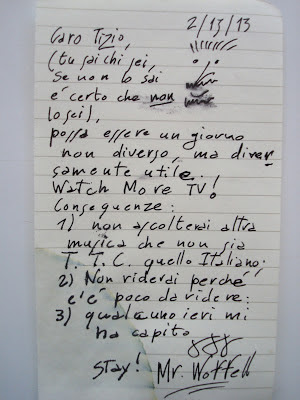 2/13/13
Caro Tizio,
(tu sai chi sei,
se non lo sai
è certo che non
lo sei),
possa essere un giorno
non diverso, ma diver
samente utile.
Watch More TV!
Conseguenze:
1) non ascolterai altra
musica che non sia
T.T.C. quello Italiano;
2) Non riderai perché
c'è poco da ridere;
3) qualcuno ieri mi
ha capito
STAY!